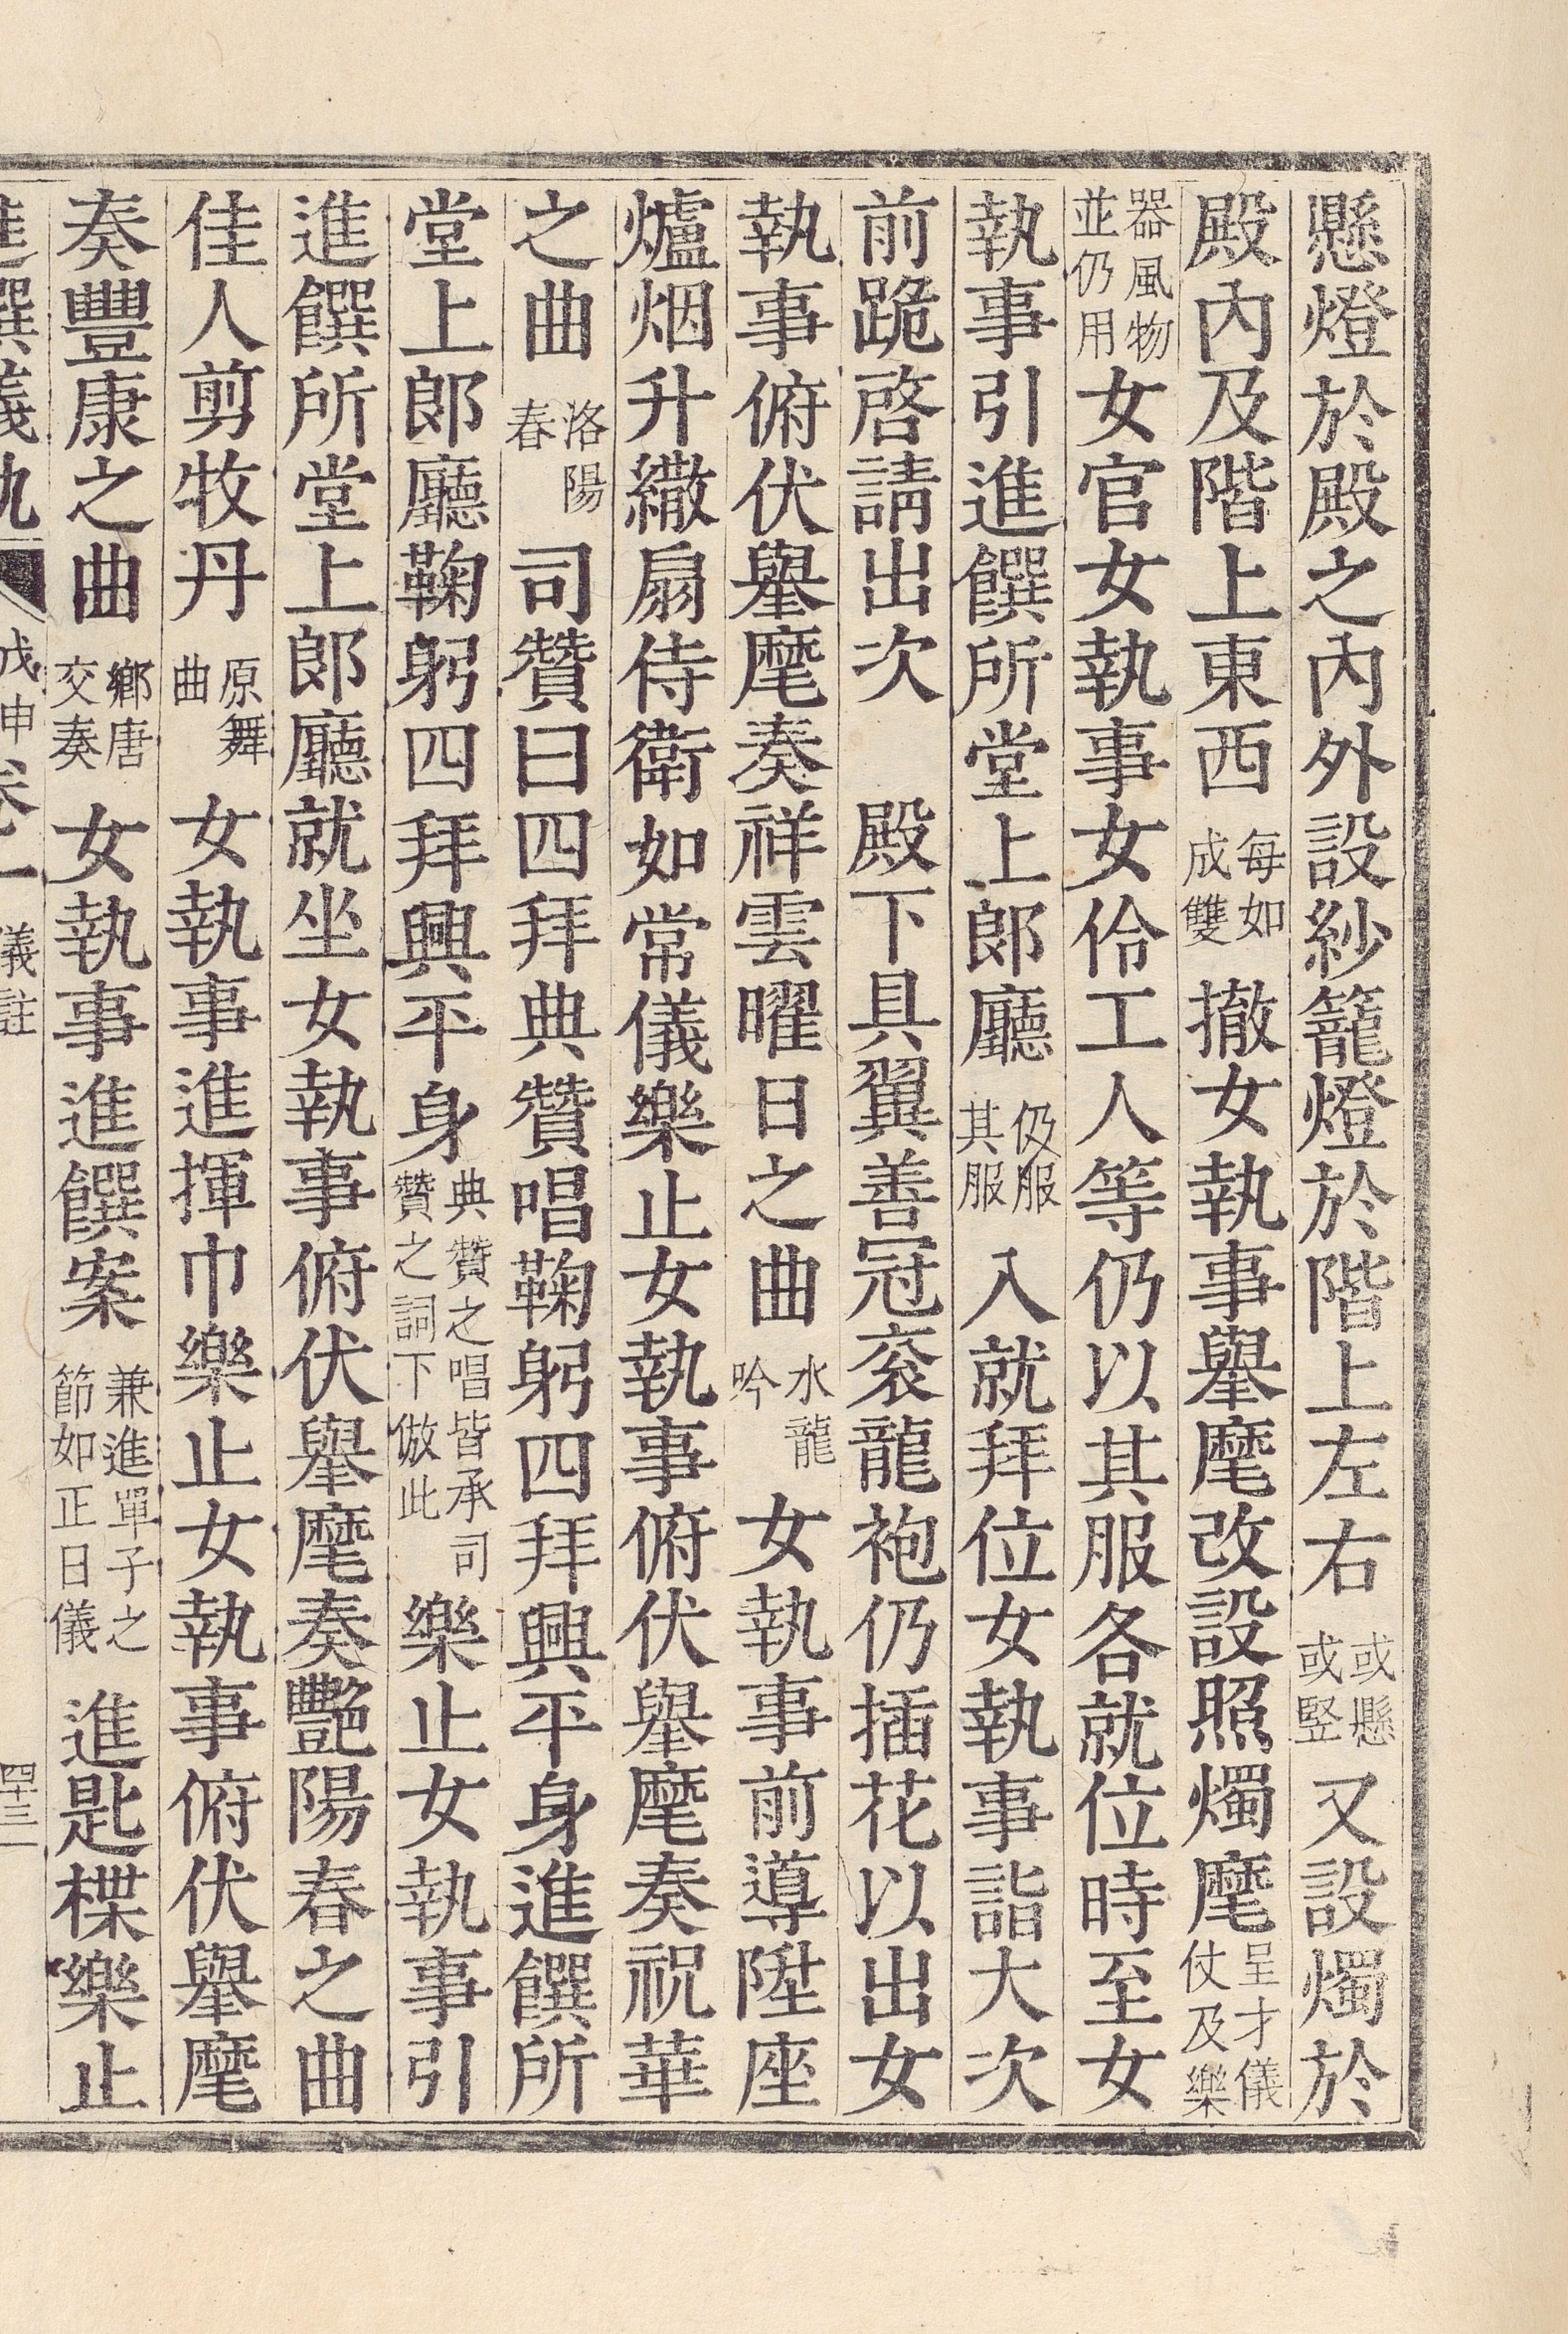 懸燈於殿之內外設紗籠燈於階上左右或懸或竪又設燭於
殿內及階上東西每如成雙撤女執事擧麾改設照燭麾呈才儀仗及樂
器風物並仍用女官女執事女伶工人等仍以其服各就位時至女
執事引進饌所堂上郞廳仍服其服入就拜位女執事詣大次
前跪啓請出次殿下具翼善冠衮龍袍仍插花以出女
執事俯伏擧麾奏祥雲曜日之曲水龍吟女執事前導陞座
爐烟升繖扇侍衛如常儀樂止女執事俯伏擧麾奏祝華
之曲洛陽春司贊曰四拜典贊唱鞠躬四拜興平身進饌所
堂上郞廳鞠躬四拜興平身典贊之唱皆承司贊之詞下倣此樂止女執事引
進饌所堂上郞廳就坐女執事俯伏擧麾奏艷陽春之曲
佳人剪牧丹原舞曲女執事進揮巾樂止女執事俯伏擧麾
奏豐康之曲鄕唐交奏女執事進饌案兼進單子之節如正日儀進匙楪樂止
進饌儀軌 戊申 卷二 儀註 四十三